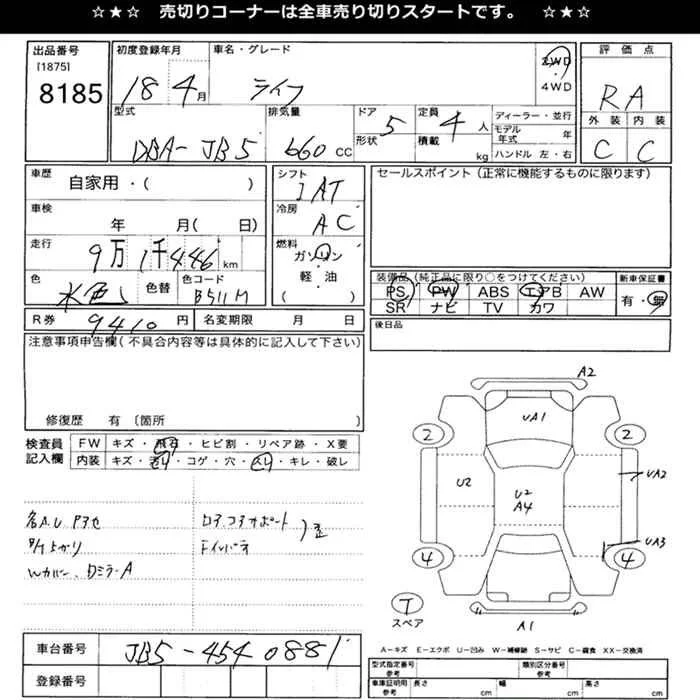 ☆★☆ 売切りコーナーは全車売り切りスタートです。 ☆★☆
出品番号
[1875]
8185
初度登録年月
18 4月
車名・グレード
ライフ
2WD
4WD
評価点
RA
外装 内装
C C
型式
DBA-JB5
排気量
660 cc
ドア
形状
5
定員
4人
積載
kg
ディーラー・並行
モデル年式 年
ハンドル 左・右
車歴
自家用・( )
車検
年 月( 日)
走行
9万1千446km
色
水色
色替
色コード
B511M
シフト
IAT
冷房
AC
燃料
ガソリン
軽・油
( )
セールスポイント(正常に機能するものに限ります)
装備品(純正品に限り○をつけてください)
PS PW ABS エアB AW
SR ナビ TV カワ
新車保証書
有・無
R券
9410円
名変期限 月 日
後日品
注意事項申告欄(不具合内容等は具体的に記入して下さい)
修復歴 有 〔箇所
検査員
記入欄
FW キズ・飛石・ヒビ割・リペア跡・X要
内装 キズ・汚れ・コゲ・穴・スレ・キレ・破レ
各A.U
Wカバー、DミラーA
A2
UA1
2 2
U2
U2
A4
UA2
UA3
4 4
T
スペア
A1
車台番号
JB5-4540881
登録番号
A－キズ E－エクボ U－凹み W－補修跡 S－サビ C－腐食 XX－交換済
型式指定番号
参考
類別区分番号
参考
車庫証明用
参考
長さ cm 幅 cm 高さ cm